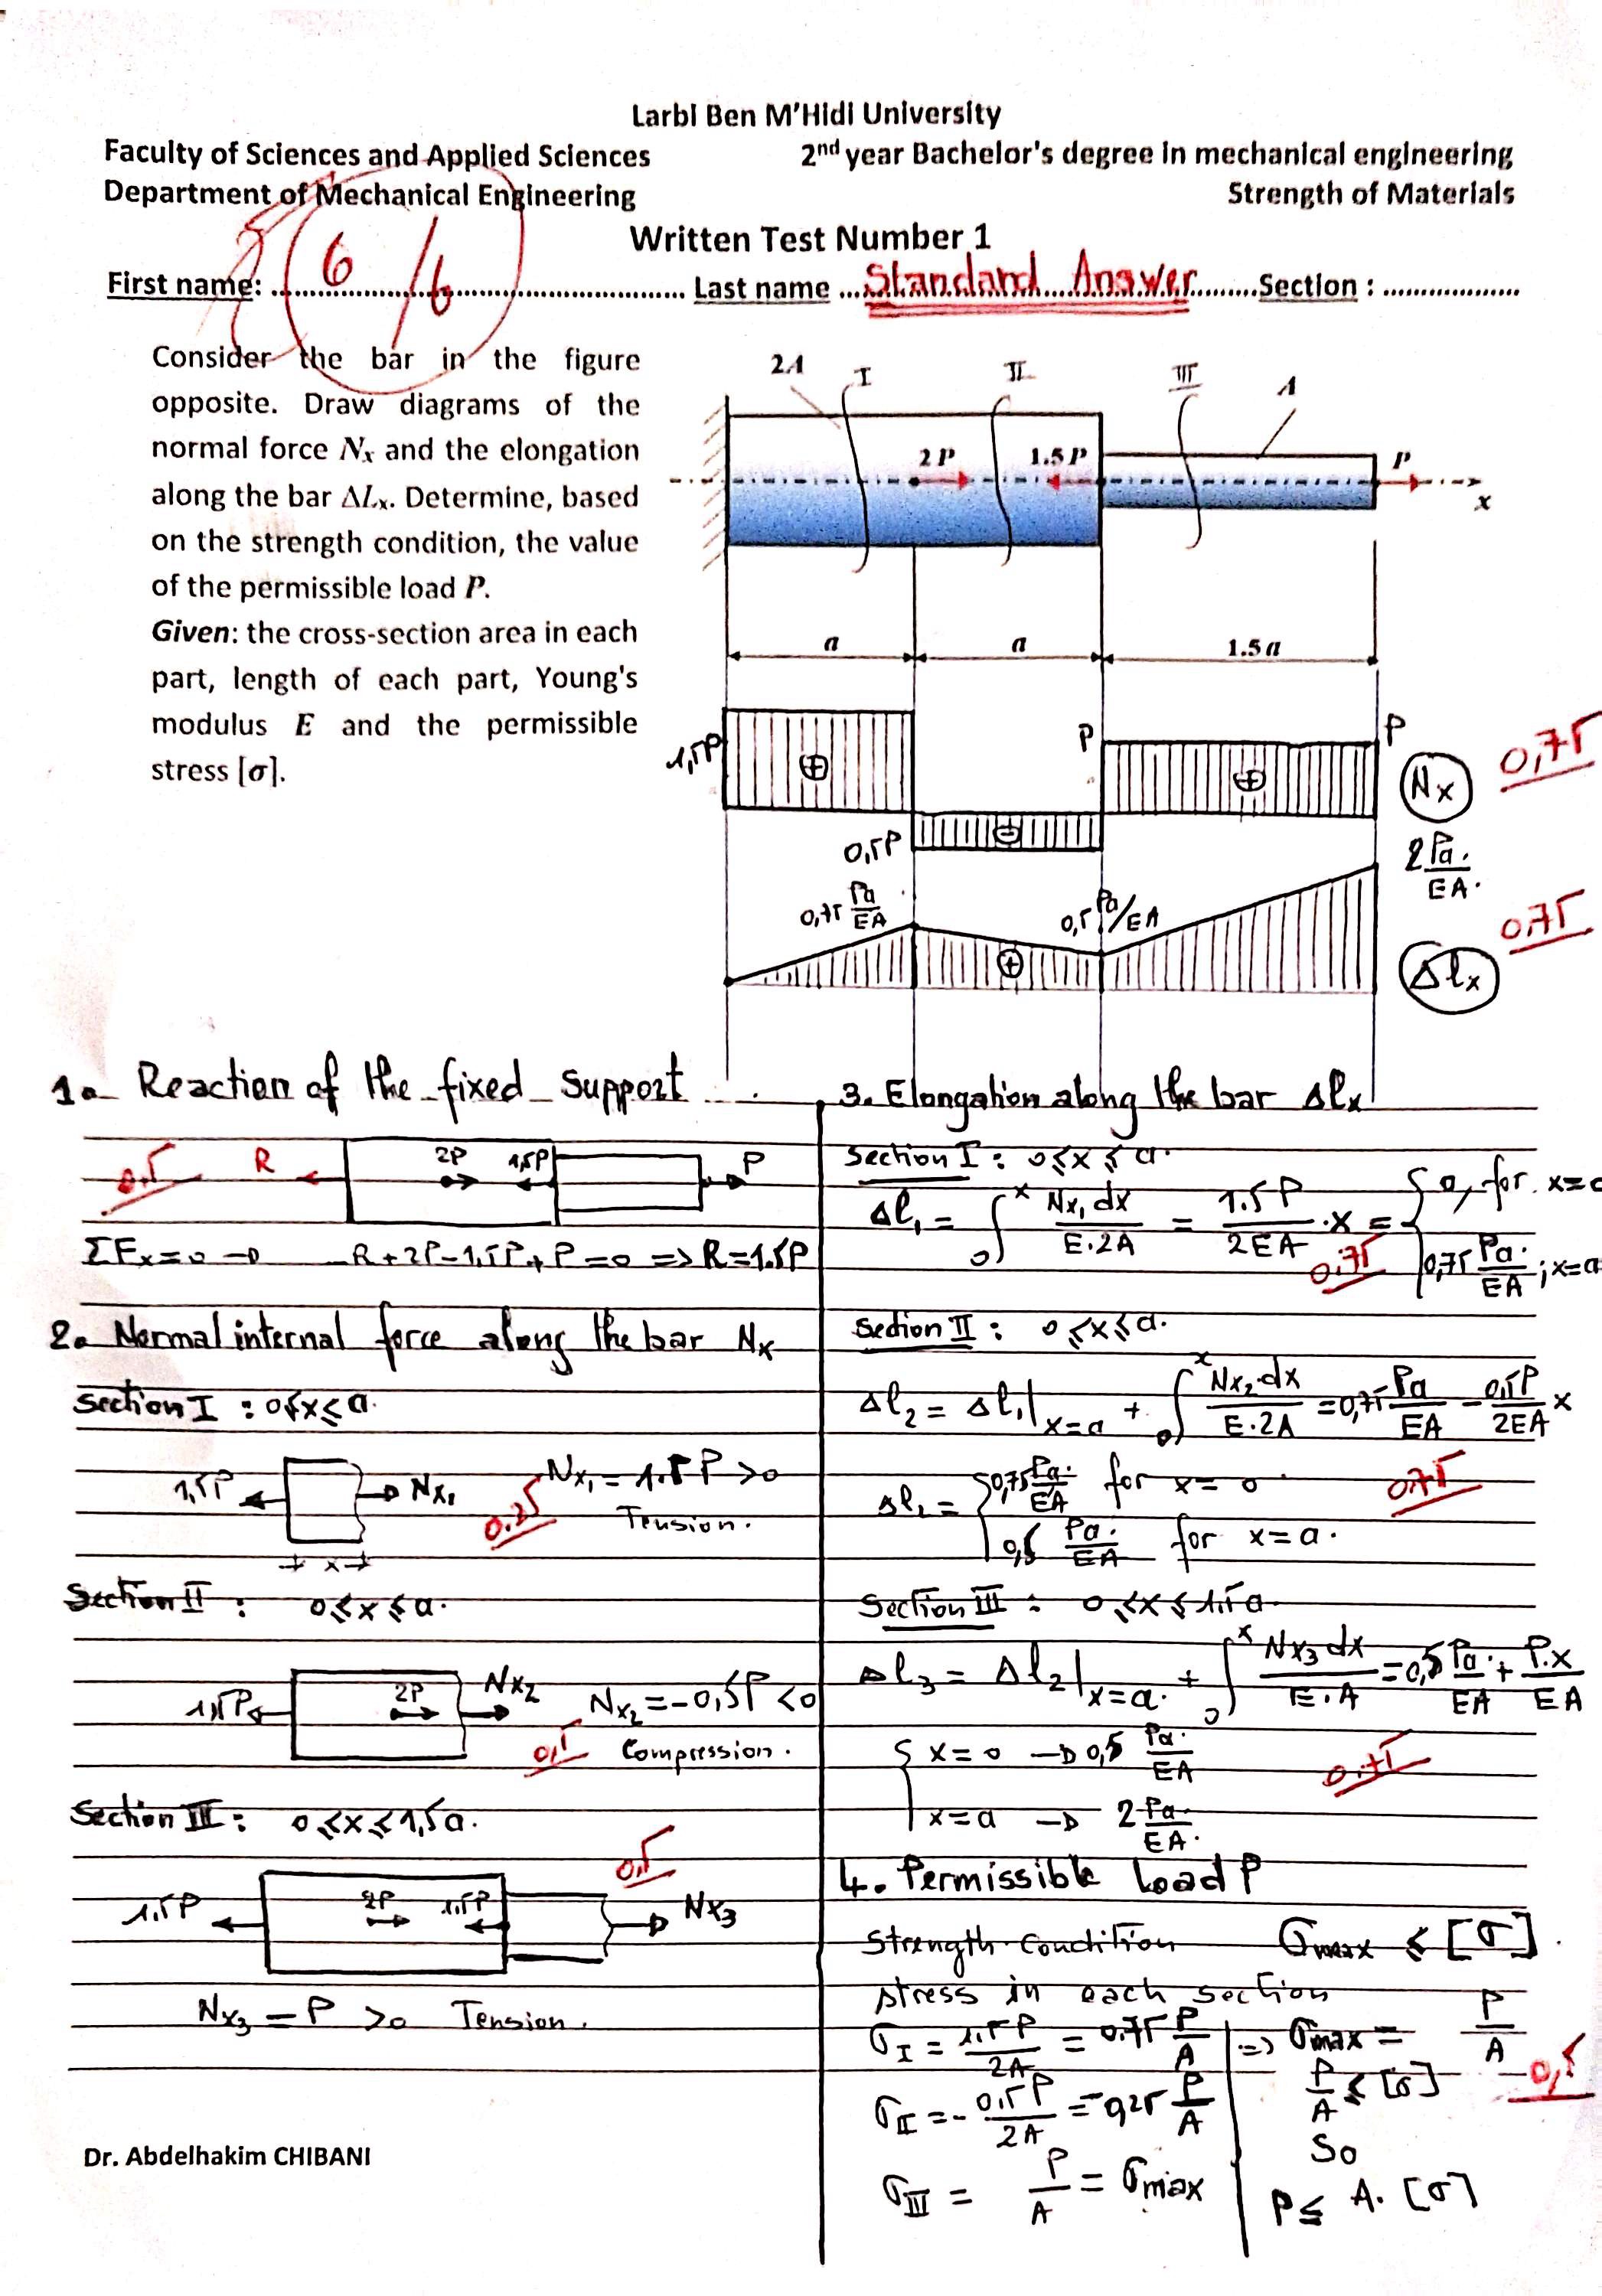 Larbi Ben M'Hidi University
Faculty of Sciences and Applied Sciences 2nd year Bachelor's degree in mechanical engineering
Department of Mechanical Engineering Strength of Materials
Written Test Number 1
6/6
First name: ............ Last name ...Standard Answer.........Section : ..................
Consider the bar in the figure
opposite. Draw diagrams of the
normal force Nx and the elongation
along the bar ΔLx. Determine, based
on the strength condition, the value
of the permissible load P.
Given: the cross-section area in each
part, length of each part, Young's
modulus E and the permissible
stress [σ].
2A I II III A
2P 1.5P P
x
a a 1.5a
1,5P ⊕ P ⊕ P Nx 0,75
0,5P ⊖
0,75 Pa/EA 0,5 Pa/EA 2 Pa/EA
⊕ Δlx 0,75
1. Reaction of the fixed support
0.5 R 2P 1,5P P
ΣFx=0 → -R+2P-1,5P+P=0 => R=1.5P
2. Normal internal force along the bar Nx
Section I : 0≤x≤a.
1,5P Nx₁ 0.25 Nx₁ = 1.5P >0
Tension.
x
Section II : 0≤x≤a.
1,5P 2P Nx2 Nx₂=-0,5P <0
0,5 Compression.
Section III : 0≤x≤1,5a.
0,5
1.5P 2P 1.5P Nx3
Nx₃ = P >0 Tension.
3. Elongation along the bar Δlx
Section I : 0≤x≤a.
Δl₁ = ∫₀ˣ Nx₁dx/E.2A = 1.5P/2EA .x = { 0, for x=0
0.75 0,75 Pa/EA ; x=a
Section II : 0≤x≤a.
Δl₂ = Δl₁|x=a + ∫₀ˣ Nx₂dx/E.2A = 0,75 Pa/EA - 0,5P/2EA x
Δl₂ = { 0,75 Pa/EA for x=0 0.75
0,5 Pa/EA for x=a.
Section III : 0≤x≤1,5a
Δl₃ = Δl₂|x=a. + ∫₀ˣ Nx₃dx/E.A = 0,5 Pa/EA + P.x/EA
{ x=0 → 0,5 Pa/EA 0.75
x=a → 2 Pa/EA.
4. Permissible Load P
Strength Condition σmax ≤ [σ].
stress in each section
σI = 1.5P/2A = 0.75 P/A => σmax = P/A
P/A ≤ [σ] 0,5
σII = - 0,5P/2A = -0,25 P/A
So
σIII = P/A = σmax
P ≤ A.[σ]
Dr. Abdelhakim CHIBANI